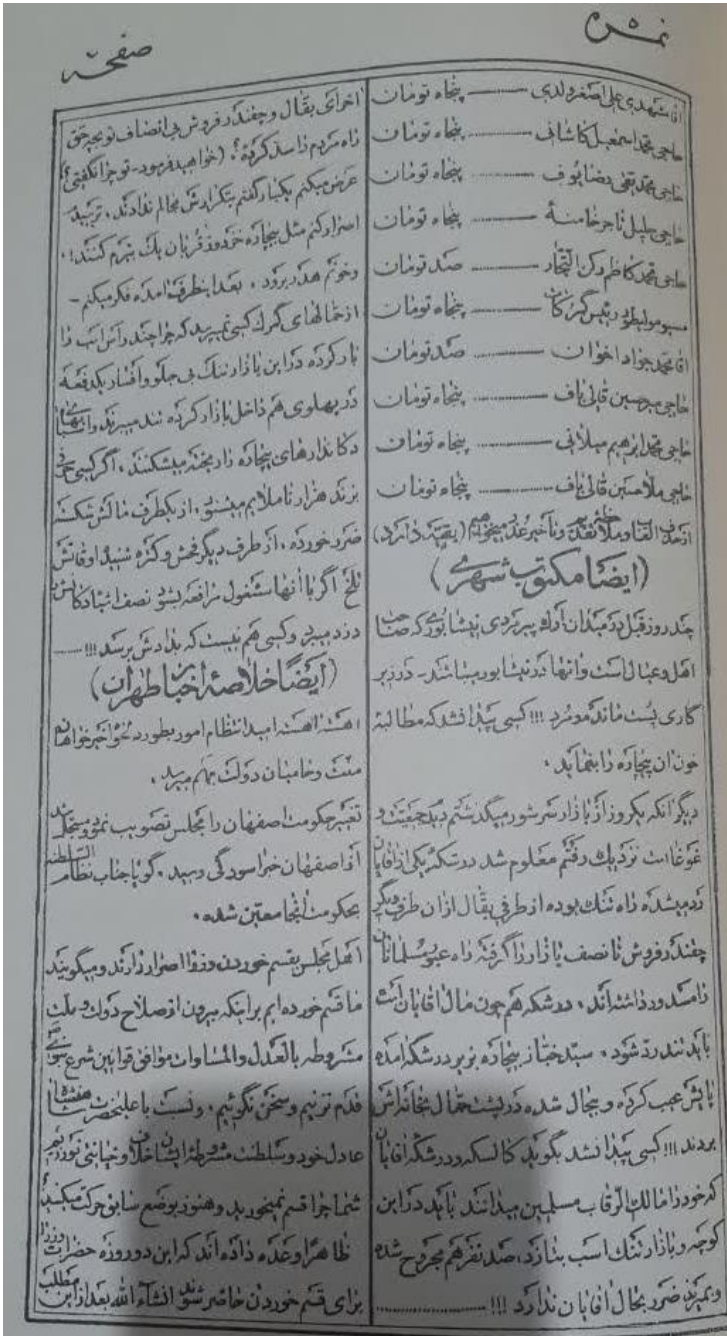 نمره
صفحه
اقا مشهدی علی اصغر ولدی ـــــ پنجاه تومان
حاجی محمد اسمعیل کاشانی ـــــ پنجاه تومان
حاجی محمد تقی رضایوف ـــــ پنجاه تومان
حاجی جلیل تاجر خامنهٔ ........ پنجاه تومان
حاجی محمد کاظم رکن التجار ........ صد تومان
مسیو رئیس گمرکات ........ پنجاه تومان
اقا محمد جواد اخوان ــــ صد تومان
حاجی میر حسین قالی باف ........ پنجاه تومان
حاجی محمد ابرهیم میلانی ـــــ پنجاه تومان
حاجی ملا حسین قالی باف ........ پنجاه تومان
از حذف القاب و تأخیر عذر میخواهیم (بقیه دارد)
(ایضا مکتوب شهری)
چند روز قبل در میدان ارک پیر مردی نیشابوری که صاحب
اهل و عیال است و انها در نیشابور میباشند ـ در زیر
گاری پست مانده و مرد !!! کسی پیدا نشد که مطالبهٔ
خون ان بیچاره را بنماید ،
دیگر انکه یکروز از بازار سرشور میگذشتم دیدم جمعیت و
غوغا است نزدیک رفتم معلوم شد درشکهٔ یکی از اقایان
رد میشده راه تنک بوده از طرفی بقال از ان طرف دیگر
چغندر فروش تا نصف بازار را گرفته راه عبور مسلمانان
را مسدود داشته‌اند ، درشکه هم چون مال اقایان است
باید تند رد شود ، سید خباز بیچاره بزیر درشکه امده
پایش عیب کرده و بیحال شده در پشت حمال بخانه‌اش
بردند !!! کسی پیدا نشد بگوید کالسکه و درشکه اقایان
که خود را مالک الرقاب مسلمین میدانند باید در این
کوچه و بازار تنک اسب بتازد ، صد نفر هم مجروح شده
و بمیرند ضرر بحال اقایان ندارد !!! ................
اخر ای بقال و چغندر فروش بی انصاف تو بچه حق
راه مردم را سد کردهٔ ؟ (خواهید فرمود ـ تو چرا نگفتی؟)
عرض میکنم یکبار گفتم بتکرارش مجالم ندادند ، ترسیدم
اصرار کنم مثل بیچاره قربان یک بترم کنند! ،
و خونم هدر برود ، بعد اینطرف امده فکر میکنم ـ
از حمالهای گمرک کسی نمیپرسد که چرا چند راس اسب را
بار کرده در این بازار تنک بی جلو و افسار یکدفعه
در پهلوی هم داخل بازار کرده تند میرند و اسبابهای
دکاندارهای بیچاره را ریخته میشکنند ، اگر کسی حرفی
بزند هزار ناملایم میشنود ، از یکطرف مالش شکسته
ضرر خورده ، از طرف دیگر فحش و کتره شنیده اوقاتش
تلخ اگر با انها مشغول مرافعه بشود نصف اسباب دکانش را
دزد میبرد و کسی هم نیست که بدادش برسد !!! ......
(ایضاً خلاصه اخبار طهران)
اهسته اهسته امید انتظام امور بطور دلخواه خیرخواهان
ملت و حامیان دولت بهم میرسد ،
تغییر حکومت اصفهان را مجلس تصویب نمود
از اصفهان خبر اسودگی رسید ، گویا جناب نظام السلطنه
بحکومت انجا معین شده ،
اهل مجلس بقسم خوردن وزرا اصرار دارند و میگویند
ما قسم خورده ایم بر اینکه بیرون از صلاح دولت و ملت
مشروطه بالعدل والمساوات موافق قوانین شرع نبوی ص
قدم نزنیم و سخن نگوئیم ، و نسبت باعلیحضرت شاهنشاه
عادل خود و سلطنت مشروطهٔ ایشان خلاف و خیانتی نورزیم
شما چرا قسم نمیخورید و هنوز بوضع سابق حرکت میکنید
ظاهراً وعده داده اند که این دو روزه حضرات وزراء
برای قسم خوردن حاضر شوند انشاء الله بعد از این مطلب